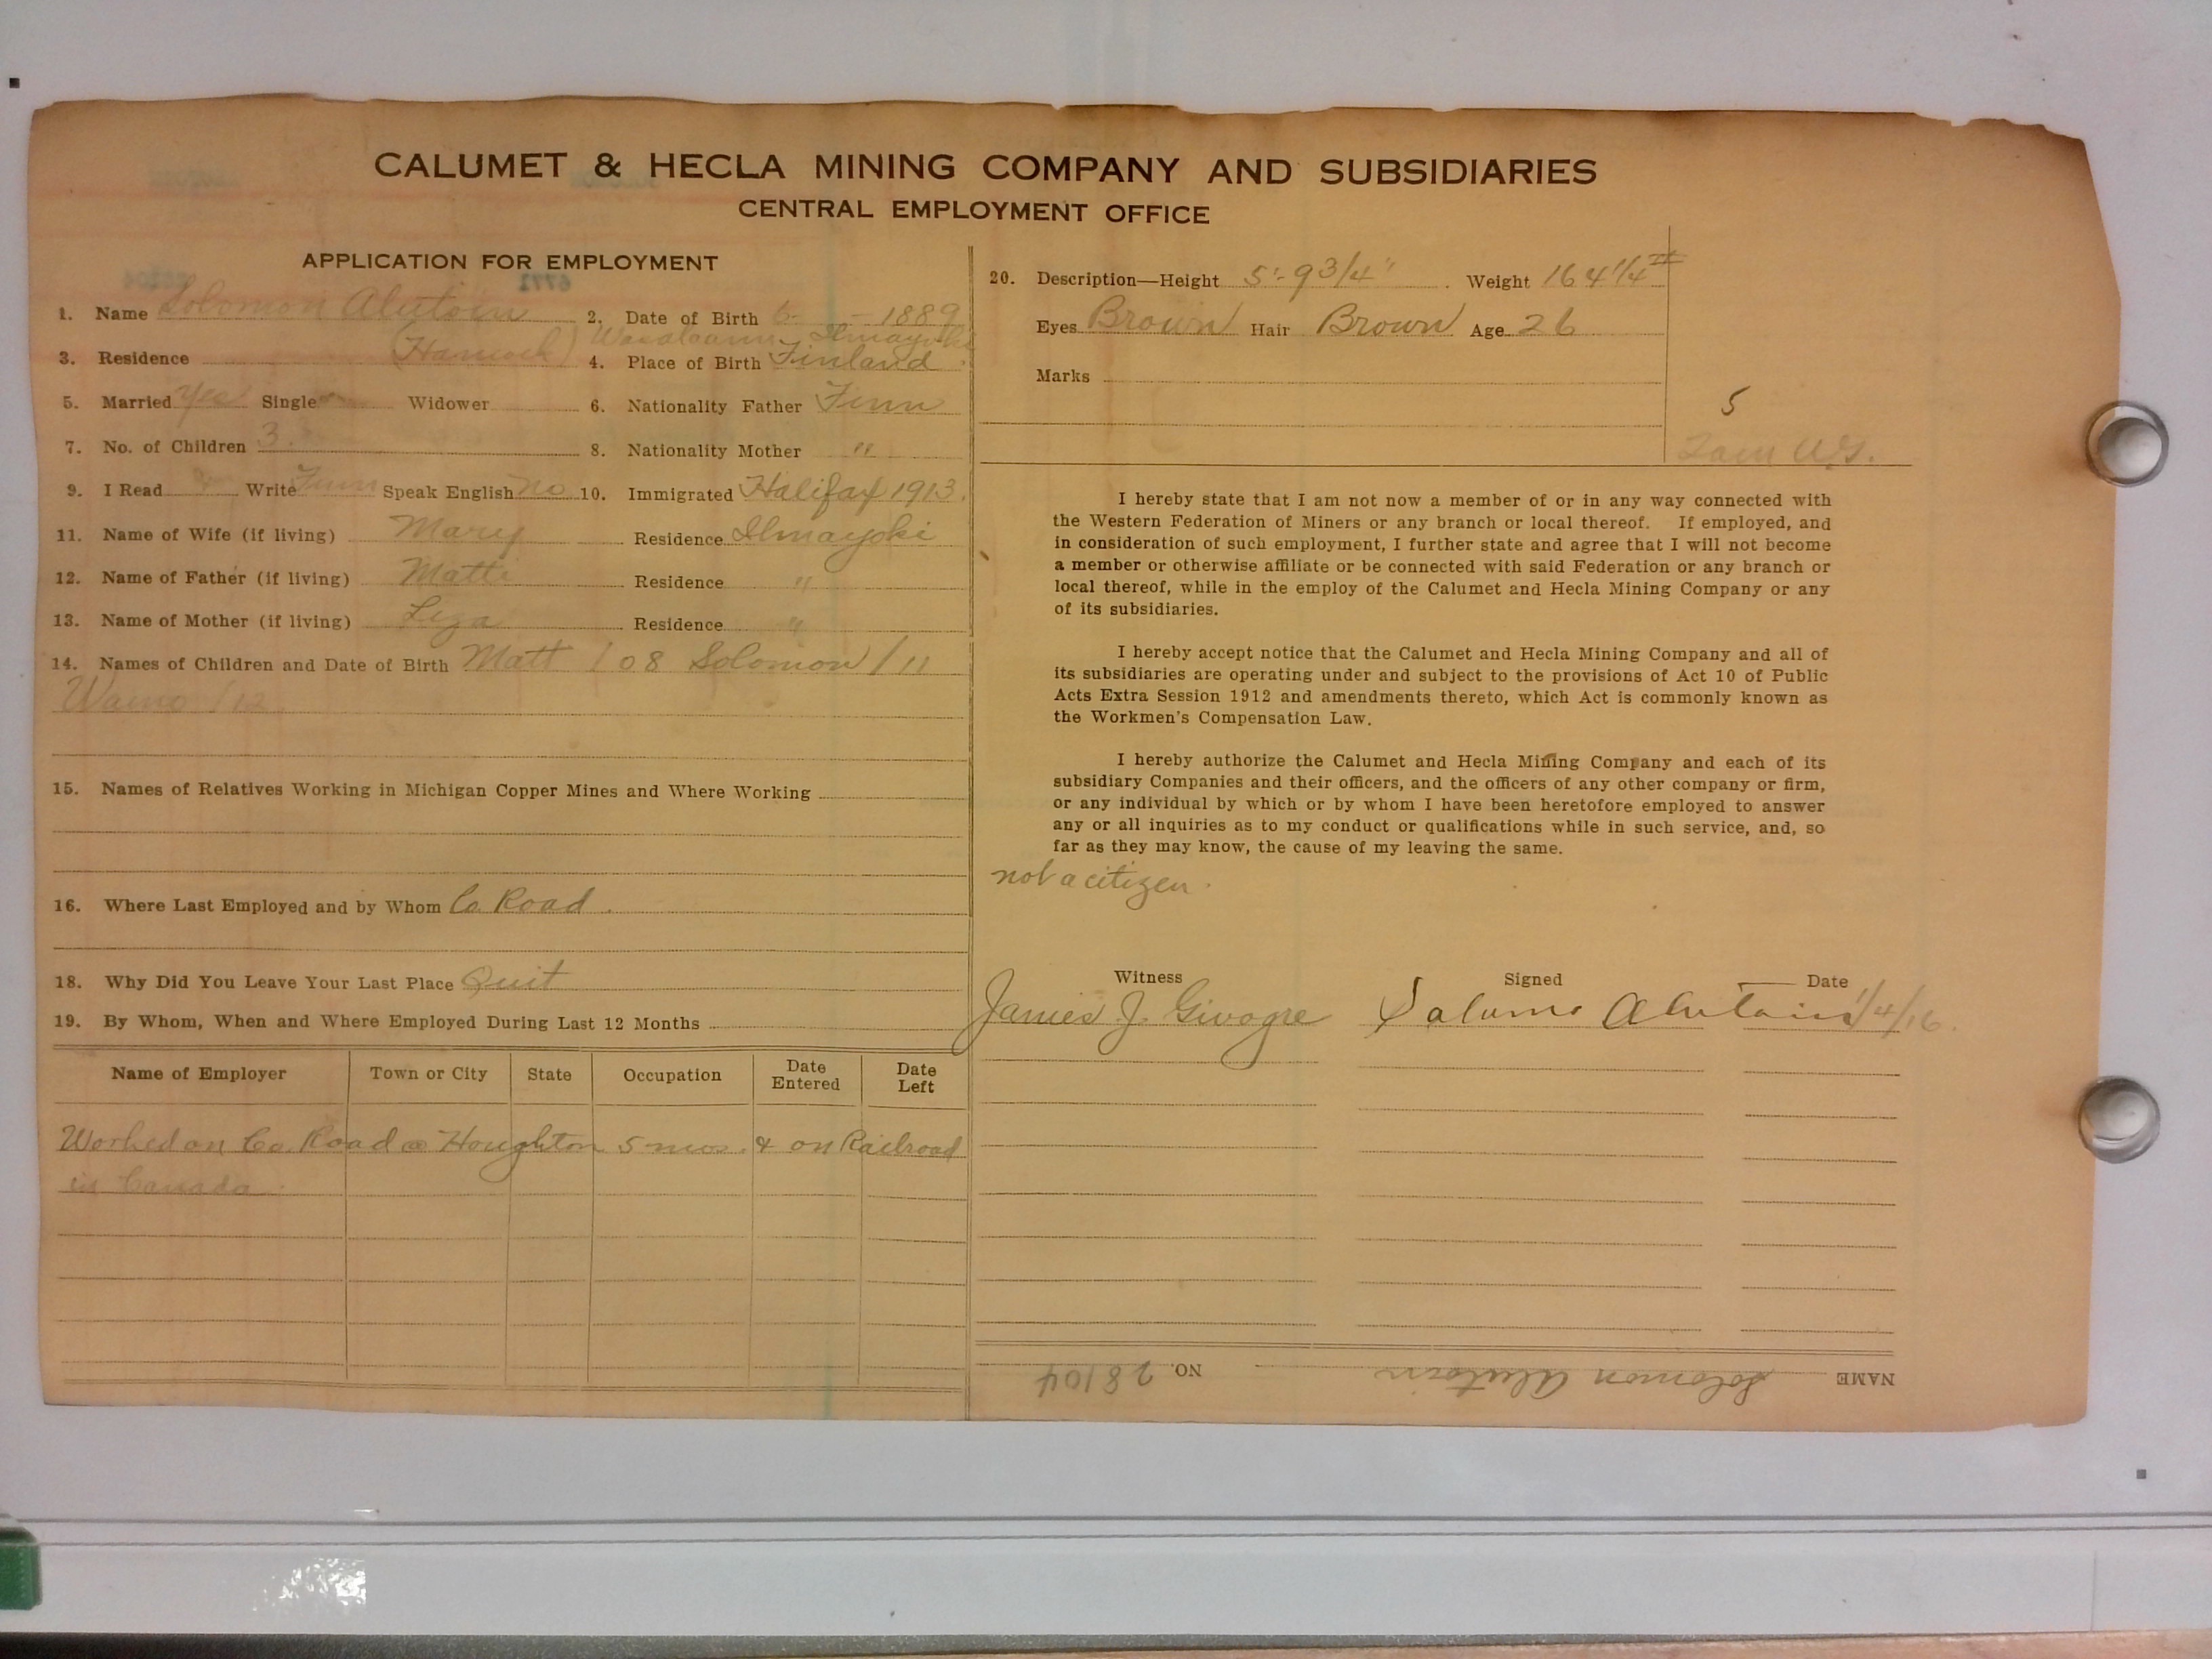 CALUMET & HECLA MINING COMPANY AND SUBSIDIARIES
CENTRAL EMPLOYMENT OFFICE
APPLICATION FOR EMPLOYMENT
1. Name Solomon Alutoin 2. Date of Birth 6- - 1889
3. Residence (Hancock) Ilmayoki
4. Place of Birth Finland
5. Married Yes Single Widower 6. Nationality Father Finn
7. No. of Children 3. 8. Nationality Mother "
9. I Read & Write Finn Speak English no 10. Immigrated Halifax 1913.
11. Name of Wife (if living) Mary Residence Ilmayoki
12. Name of Father (if living) Matti Residence "
13. Name of Mother (if living) Liza Residence "
14. Names of Children and Date of Birth Matt /08 Solomon /11
Waino /12
15. Names of Relatives Working in Michigan Copper Mines and Where Working
16. Where Last Employed and by Whom Co. Road.
18. Why Did You Leave Your Last Place Quit
19. By Whom, When and Where Employed During Last 12 Months
Name of Employer Town or City State Occupation Date Entered Date Left
Worked on Co. Road @ Houghton 5 mos. & on Railroad
in Canada.
20. Description—Height 5'-9 3/4" Weight 164 1/4 #
Eyes Brown Hair Brown Age 26
Marks
5
I hereby state that I am not now a member of or in any way connected with
the Western Federation of Miners or any branch or local thereof. If employed, and
in consideration of such employment, I further state and agree that I will not become
a member or otherwise affiliate or be connected with said Federation or any branch or
local thereof, while in the employ of the Calumet and Hecla Mining Company or any
of its subsidiaries.
I hereby accept notice that the Calumet and Hecla Mining Company and all of
its subsidiaries are operating under and subject to the provisions of Act 10 of Public
Acts Extra Session 1912 and amendments thereto, which Act is commonly known as
the Workmen's Compensation Law.
I hereby authorize the Calumet and Hecla Mining Company and each of its
subsidiary Companies and their officers, and the officers of any other company or firm,
or any individual by which or by whom I have been heretofore employed to answer
any or all inquiries as to my conduct or qualifications while in such service, and, so
far as they may know, the cause of my leaving the same.
not a citizen.
Witness Signed Date
James J. Givogre Salumo Alutain 1/4/16.
NAME Solomon Alutoin NO. 28104